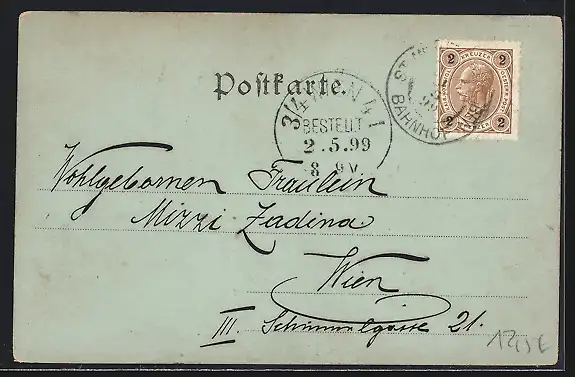 Postkarte.
2 KREUZER 2
2 KREUZER 2
BAHNHOF
3/4 WIEN 4 1
BESTELLT
2.5.99
8. 9 V.
Wohlgebornen Fräulein
Mizzi Zadina
Wien
III. Schimmelgasse 21.